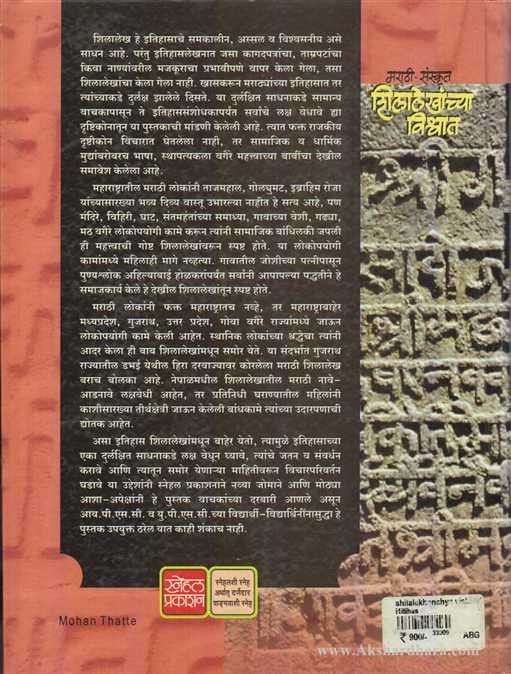 शिलालेख हे इतिहासाचे समकालीन, अस्सल व विश्वसनीय असे
साधन आहे. परंतु इतिहासलेखनात जसा कागदपत्रांचा, ताम्रपटांचा
किंवा नाण्यांवरील मजकुराचा प्रभावीपणे वापर केला गेला, तसा
शिलालेखांचा केला गेला नाही. खासकरून मराठ्यांच्या इतिहासात तर
त्यांच्याकडे दुर्लक्ष झालेले दिसते. या दुर्लक्षित साधनाकडे सामान्य
वाचकापासून ते इतिहाससंशोधकापर्यंत सर्वांचे लक्ष वेधावे ह्या
दृष्टिकोनातून या पुस्तकाची मांडणी केलेली आहे. त्यात फक्त राजकीय
दृष्टीकोन विचारात घेतलेला नाही, तर सामाजिक व धार्मिक
मुद्यांबरोबरच भाषा, स्थापत्यकला वगैरे महत्त्वाच्या बाबींचा देखील
समावेश केलेला आहे.
महाराष्ट्रातील मराठी लोकांनी ताजमहाल, गोलघुमट, इब्राहिम रोजा
यांच्यासारख्या भव्य दिव्य वास्तू उभारल्या नाहीत हे सत्य आहे, पण
मंदिरे, विहिरी, घाट, संतमहंतांच्या समाध्या, गावाच्या वेशी, गढ्या,
मठ वगैरे लोकोपयोगी कामे करून त्यांनी सामाजिक बांधिलकी जपली
ही महत्वाची गोष्ट शिलालेखांवरून स्पष्ट होते. या लोकोपयोगी
कामांमध्ये महिलाही मागे नव्हत्या. गावातील जोशीच्या पत्नीपासून
पुण्यश्लोक अहिल्याबाई होळकरांपर्यंत सर्वांनी आपापल्या पद्धतीने हे
समाजकार्य केले हे देखील शिलालेखांतून स्पष्ट होते.
मराठी लोकांनी फक्त महाराष्ट्रातच नव्हे, तर महाराष्ट्राबाहेर
मध्यप्रदेश, गुजराथ, उत्तर प्रदेश, गोवा वगैरे राज्यांमध्ये जाऊन
लोकोपयोगी कामे केली आहेत. स्थानिक लोकांच्या श्रद्धेचा त्यांनी
आदर केला ही बाब शिलालेखांमधून समोर येते. या संदर्भात गुजराथ
राज्यातील डभई येथील हिरा दरवाज्यावर कोरलेला मराठी शिलालेख
बराच बोलका आहे. नेपाळमधील शिलालेखातील मराठी नावे-
आडनावे लक्षवेधी आहेत, तर प्रतिनिधी घराण्यातील महिलांनी
काशीसारख्या तीर्थक्षेत्री जाऊन केलेली बांधकामे त्यांच्या उदारपणाची
द्योतक आहेत.
असा इतिहास शिलालेखांमधून बाहेर येतो, त्यामुळे इतिहासाच्या
एका दुर्लक्षित साधनाकडे लक्ष वेधून घ्यावे, त्यांचे जतन व संवर्धन
करावे आणि त्यातून समोर येणाऱ्या माहितीवरून विचारपरिवर्तन
घडावे या उद्देशांनी स्नेहल प्रकाशनाने नव्या जोमाने आणि मोठ्या
आशा-अपेक्षांनी हे पुस्तक वाचकांच्या दरबारी आणले असून
आय.पी.एस.सी. व यु.पी.एस.सी.च्या विद्यार्थी-विद्यार्थिनींनासुद्धा हे
पुस्तक उपयुक्त ठरेल यात काही शंकाच नाही.
मराठी-संस्कृत
शिलालेखांच्या
विश्वात
स्नेहल
प्रकाशन
स्नेहलशी स्नेह
अर्थात् दर्जेदार
वाङ्मयाशी स्नेह
Mohan Thatte
Itihas
₹ 900/- 33909 ABG
www.Akshardhara.com